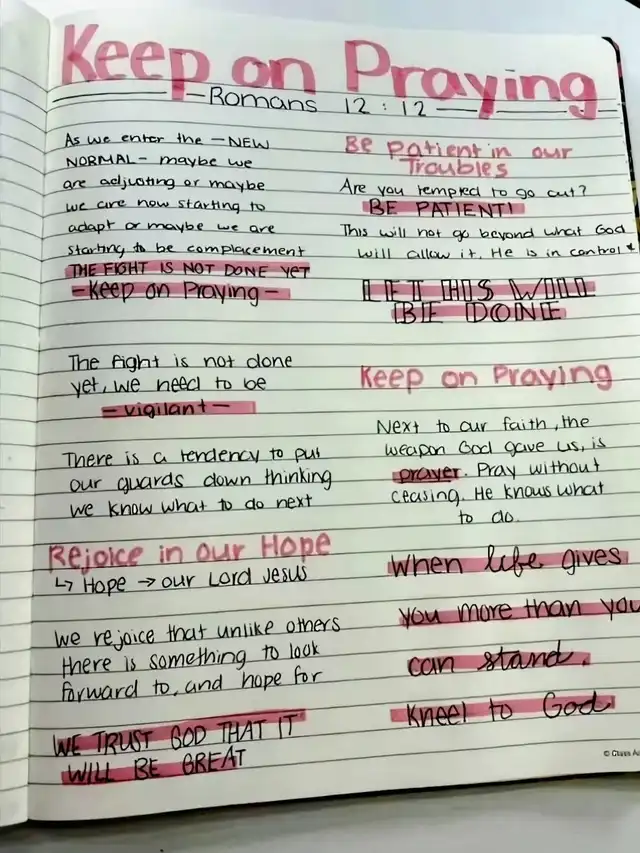 Keep on Praying
Romans 12:12
As we enter the -NEW
NORMAL- maybe we
are adjusting or maybe
we are now starting to
adapt or maybe we are
starting to be complacement
THE FIGHT IS NOT DONE YET
-Keep on Praying-
The fight is not done
yet, we need to be
-vigilant-
There is a tendency to put
our guards down thinking
we know what to do next
Rejoice in our Hope
↳ Hope → our Lord Jesus
We rejoice that unlike others
there is something to look
forward to, and hope for
WE TRUST GOD THAT IT
WILL BE GREAT
Be Patient in our
Troubles
Are you tempted to go out?
BE PATIENT!
This will not go beyond what God
will allow it. He is in control
LET HIS WILL
BE DONE
Keep on Praying
Next to our faith, the
weapon God gave us, is
prayer. Pray without
ceasing. He knows what
to do.
When life gives
you more than you
can stand,
Kneel to God
©